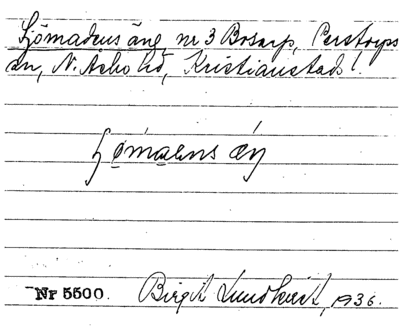 Ljömadens äng, nr 3 Bosarp, Perstorps
sn, N. Åsbo hd, Kristianstads l.
äŋ
Nr 5500. Birgit Lundkvist, 1936.